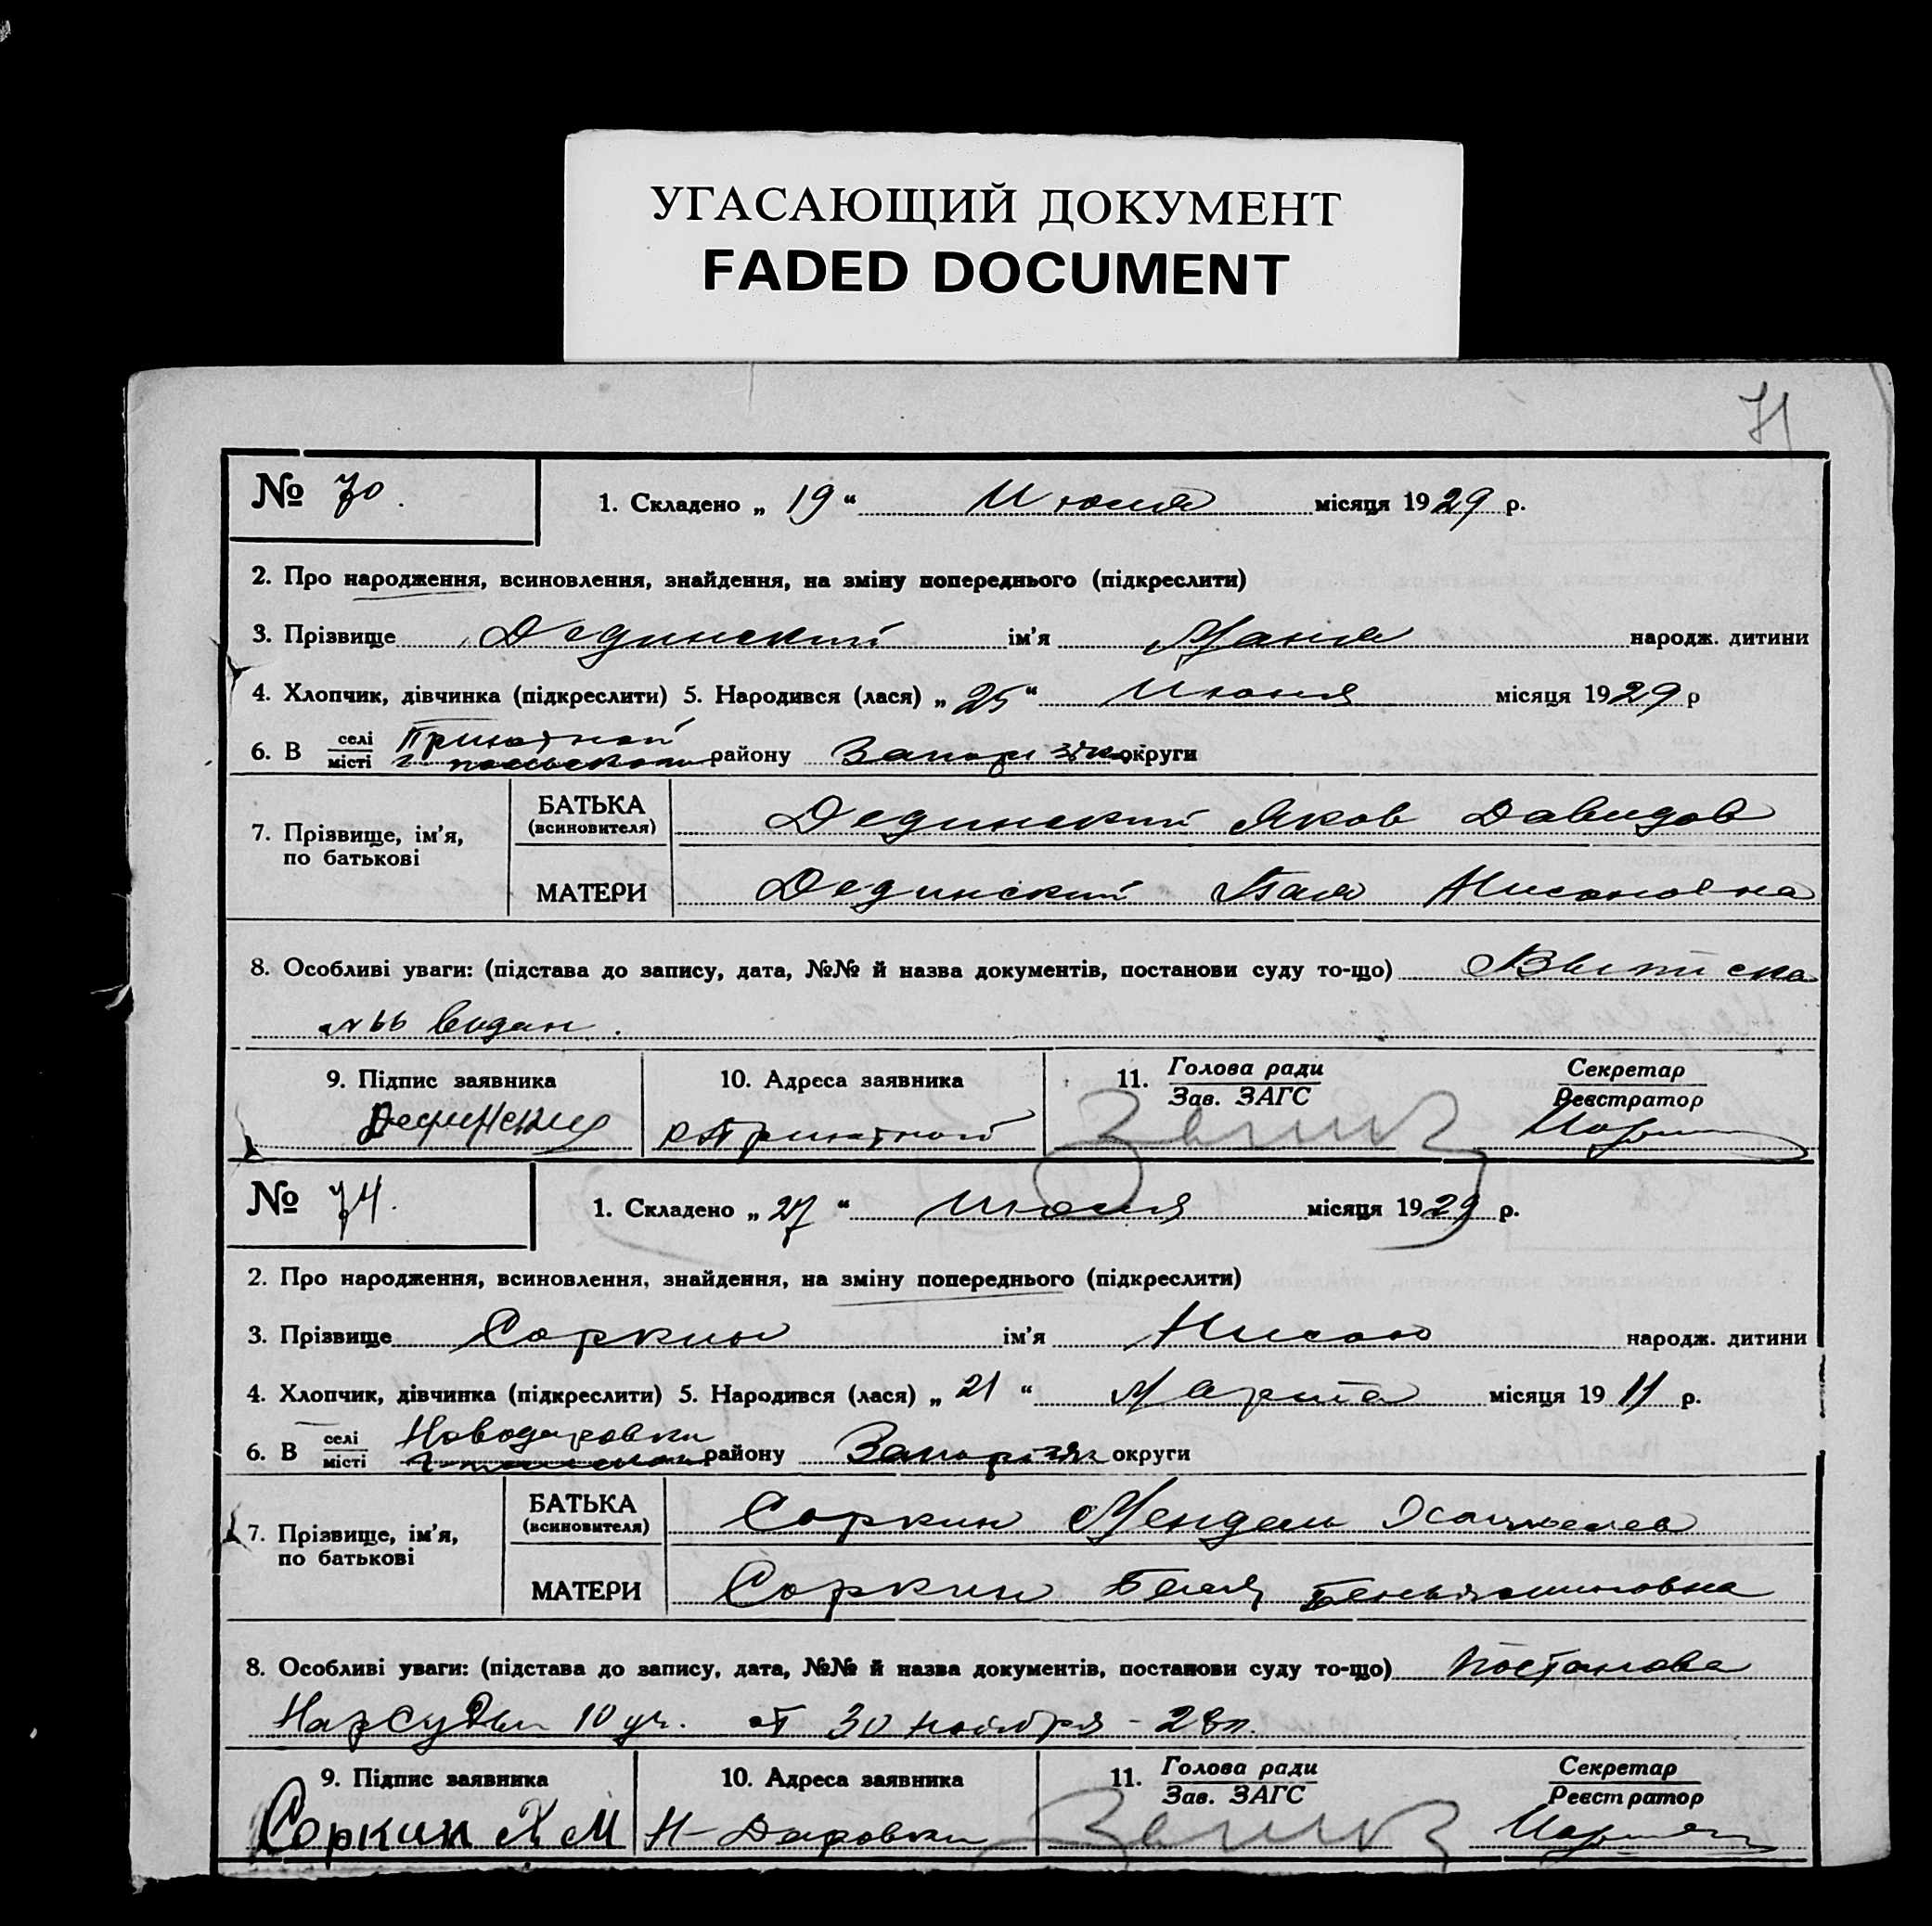 УГАСАЮЩИЙ ДОКУМЕНТ
FADED DOCUMENT
71
№ 70.
1. Складено „ 19 “ Июля місяця 1929 р.
2. Про народження, всиновлення, знайдення, на зміну попереднього (підкреслити)
3. Прізвище Дединский ім'я Маня народж. дитини
4. Хлопчик, дівчинка (підкреслити) 5. Народився (лася) „ 25 “ Июня місяця 1929 р
6. В селі місті Приютной району Запоризьк округи
7. Прізвище, ім'я, по батькові
БАТЬКА (всиновителя) Дединский Яков Давидов
МАТЕРИ Дединский Нисоновна
8. Особливі уваги: (підстава до запису, дата, №№ й назва документів, постанови суду то-що) Выписка
№ 66 видан.
9. Підпис заявника
10. Адреса заявника
11. Голова ради
Зав. ЗАГС
Секретар
Реєстратор
Дединский Приютной
№ 71.
1. Складено „ 27 “ Июля місяця 1929 р.
2. Про народження, всиновлення, знайдення, на зміну попереднього (підкреслити)
3. Прізвище Соркин ім'я Нисон народж. дитини
4. Хлопчик, дівчинка (підкреслити) 5. Народився (лася) „ 21 “ Марта місяця 1911 р.
6. В селі місті Новодаровки району Запорізьк округи
7. Прізвище, ім'я, по батькові
БАТЬКА (всиновителя) Соркин Мендель
МАТЕРИ Соркин Беля Беньяминовна
8. Особливі уваги: (підстава до запису, дата, №№ й назва документів, постанови суду то-що) Постанова
Нарсуды 10 уч. от 30 ноября - 28 г.
9. Підпис заявника
10. Адреса заявника
11. Голова ради
Зав. ЗАГС
Секретар
Реєстратор
Соркин Х М Н-Даровки